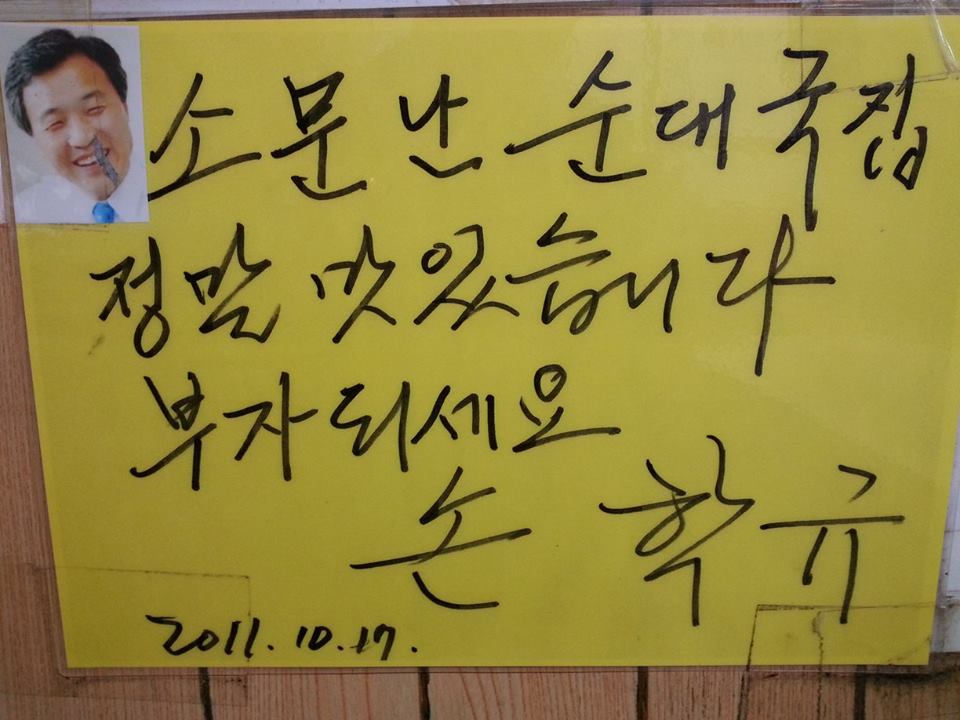 소문난 순대국집
정말 맛있습니다
부자되세요
손학규
2011.10.17.